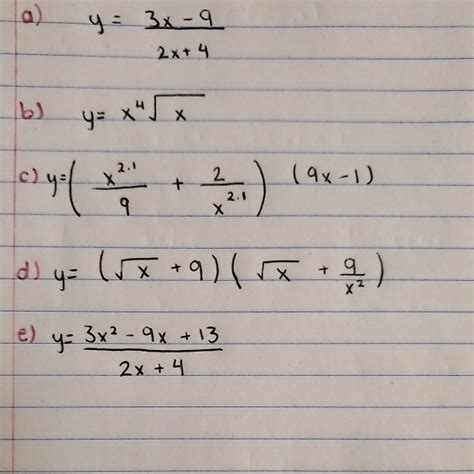 a) y = (3x - 9)/(2x + 4)
b) y = x⁴√x
c) y = (x^2.1/9 + 2/x^2.1) (9x - 1)
d) y = (√x + 9)(√x + 9/x²)
e) y = (3x² - 9x + 13)/(2x + 4)